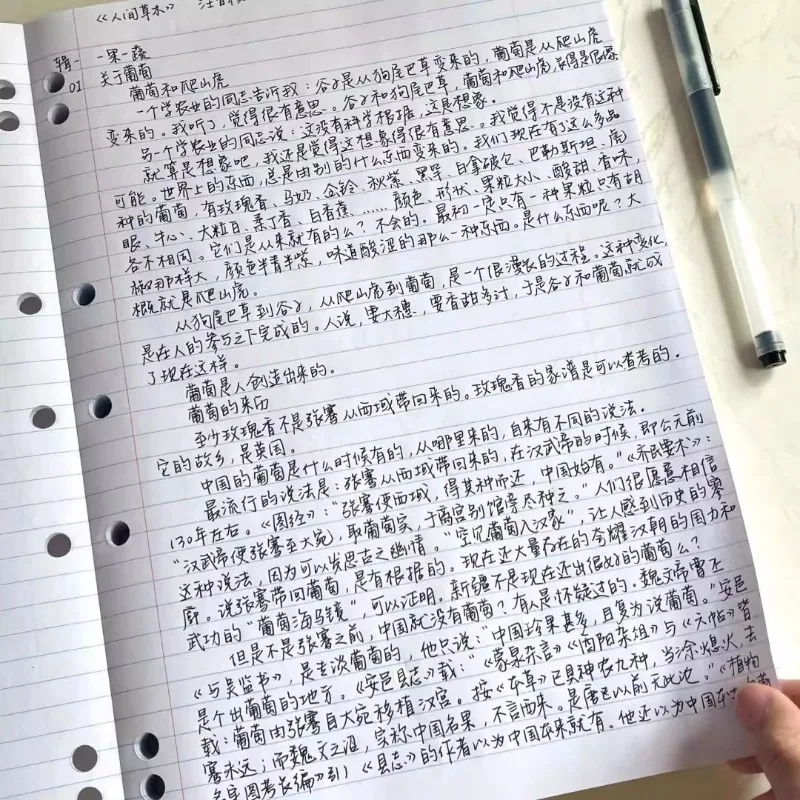 《人间草木》 汪曾祺
辑一 一果一蔬
01 关于葡萄
葡萄和爬山虎
一个学农业的同志告诉我：谷子是从狗尾巴草变来的，葡萄是从爬山虎
变来的。我听了，觉得很有意思。谷子和狗尾巴草，葡萄和爬山虎，长得是很像
另一个学农业的同志说：这没有科学根据，这是想象。
就算是想象吧，我还是觉得这想象得很有意思。我觉得不是没有这种
可能。世界上的东西，总是由别的什么东西变来的。我们现在有了这么多品
种的葡萄，有玫瑰香、马奶、金铃、秋紫、黑罕、白拿破仑、巴勒斯坦、虎
眼、牛心、大粒白、柔丁香、白香蕉……颜色、形状、果粒大小、酸甜、香味，
各不相同。它们是从来就有的么？不会的。最初一定只有一种果粒只有胡
椒那样大，颜色半青半紫，味道酸涩的那么一种东西。是什么东西呢？大
概就是爬山虎。
从狗尾巴草到谷子，从爬山虎到葡萄，是一个很漫长的过程。这种变化，
是在人的参与之下完成的。人说，要大穗，要香甜多汁，于是谷子和葡萄就成
了现在这样。
葡萄是人创造出来的。
葡萄的来历
至少玫瑰香不是张骞从西域带回来的。玫瑰香的家谱是可以查考的。
它的故乡，是英国。
中国的葡萄是什么时候有的，从哪里来的，自来有不同的说法。
最流行的说法是：张骞从西域带回来的，在汉武帝的时候，即公元前
130年左右。《图经》：“张骞使西域，得其种而还，中国始有。”《齐民要术》：
“汉武帝使张骞至大宛，取葡萄实，于离宫别馆旁尽种之。”人们很愿意相信
这种说法，因为可以发思古之幽情。“空见葡萄入汉家”，让人感到历史的寥
廓。说张骞带回葡萄，是有根据的。现在还大量存在的夸耀汉朝的国力和
武功的“葡萄海马镜”，可以证明。新疆不是现在还出很好的葡萄么？
但是不是张骞之前，中国就没有葡萄？有人是怀疑过的。魏文帝曹丕
《与吴监书》，是专谈葡萄的，他只说：“中国珍果甚多，且复为说葡萄。”安邑
是个出葡萄的地方。《安邑县志》载：“《蒙泉杂言》《酉阳杂俎》与《六帖》皆
载：葡萄由张骞自大宛移植汉宫。按《本草》已具神农九种，当涂熄火，去
骞未远；而魏文之诏，实称中国名果，不言西来。是唐已以前无此论。”《植物
名实图考长编》引《县志》的作者以为中国本来就有。他还以为中国